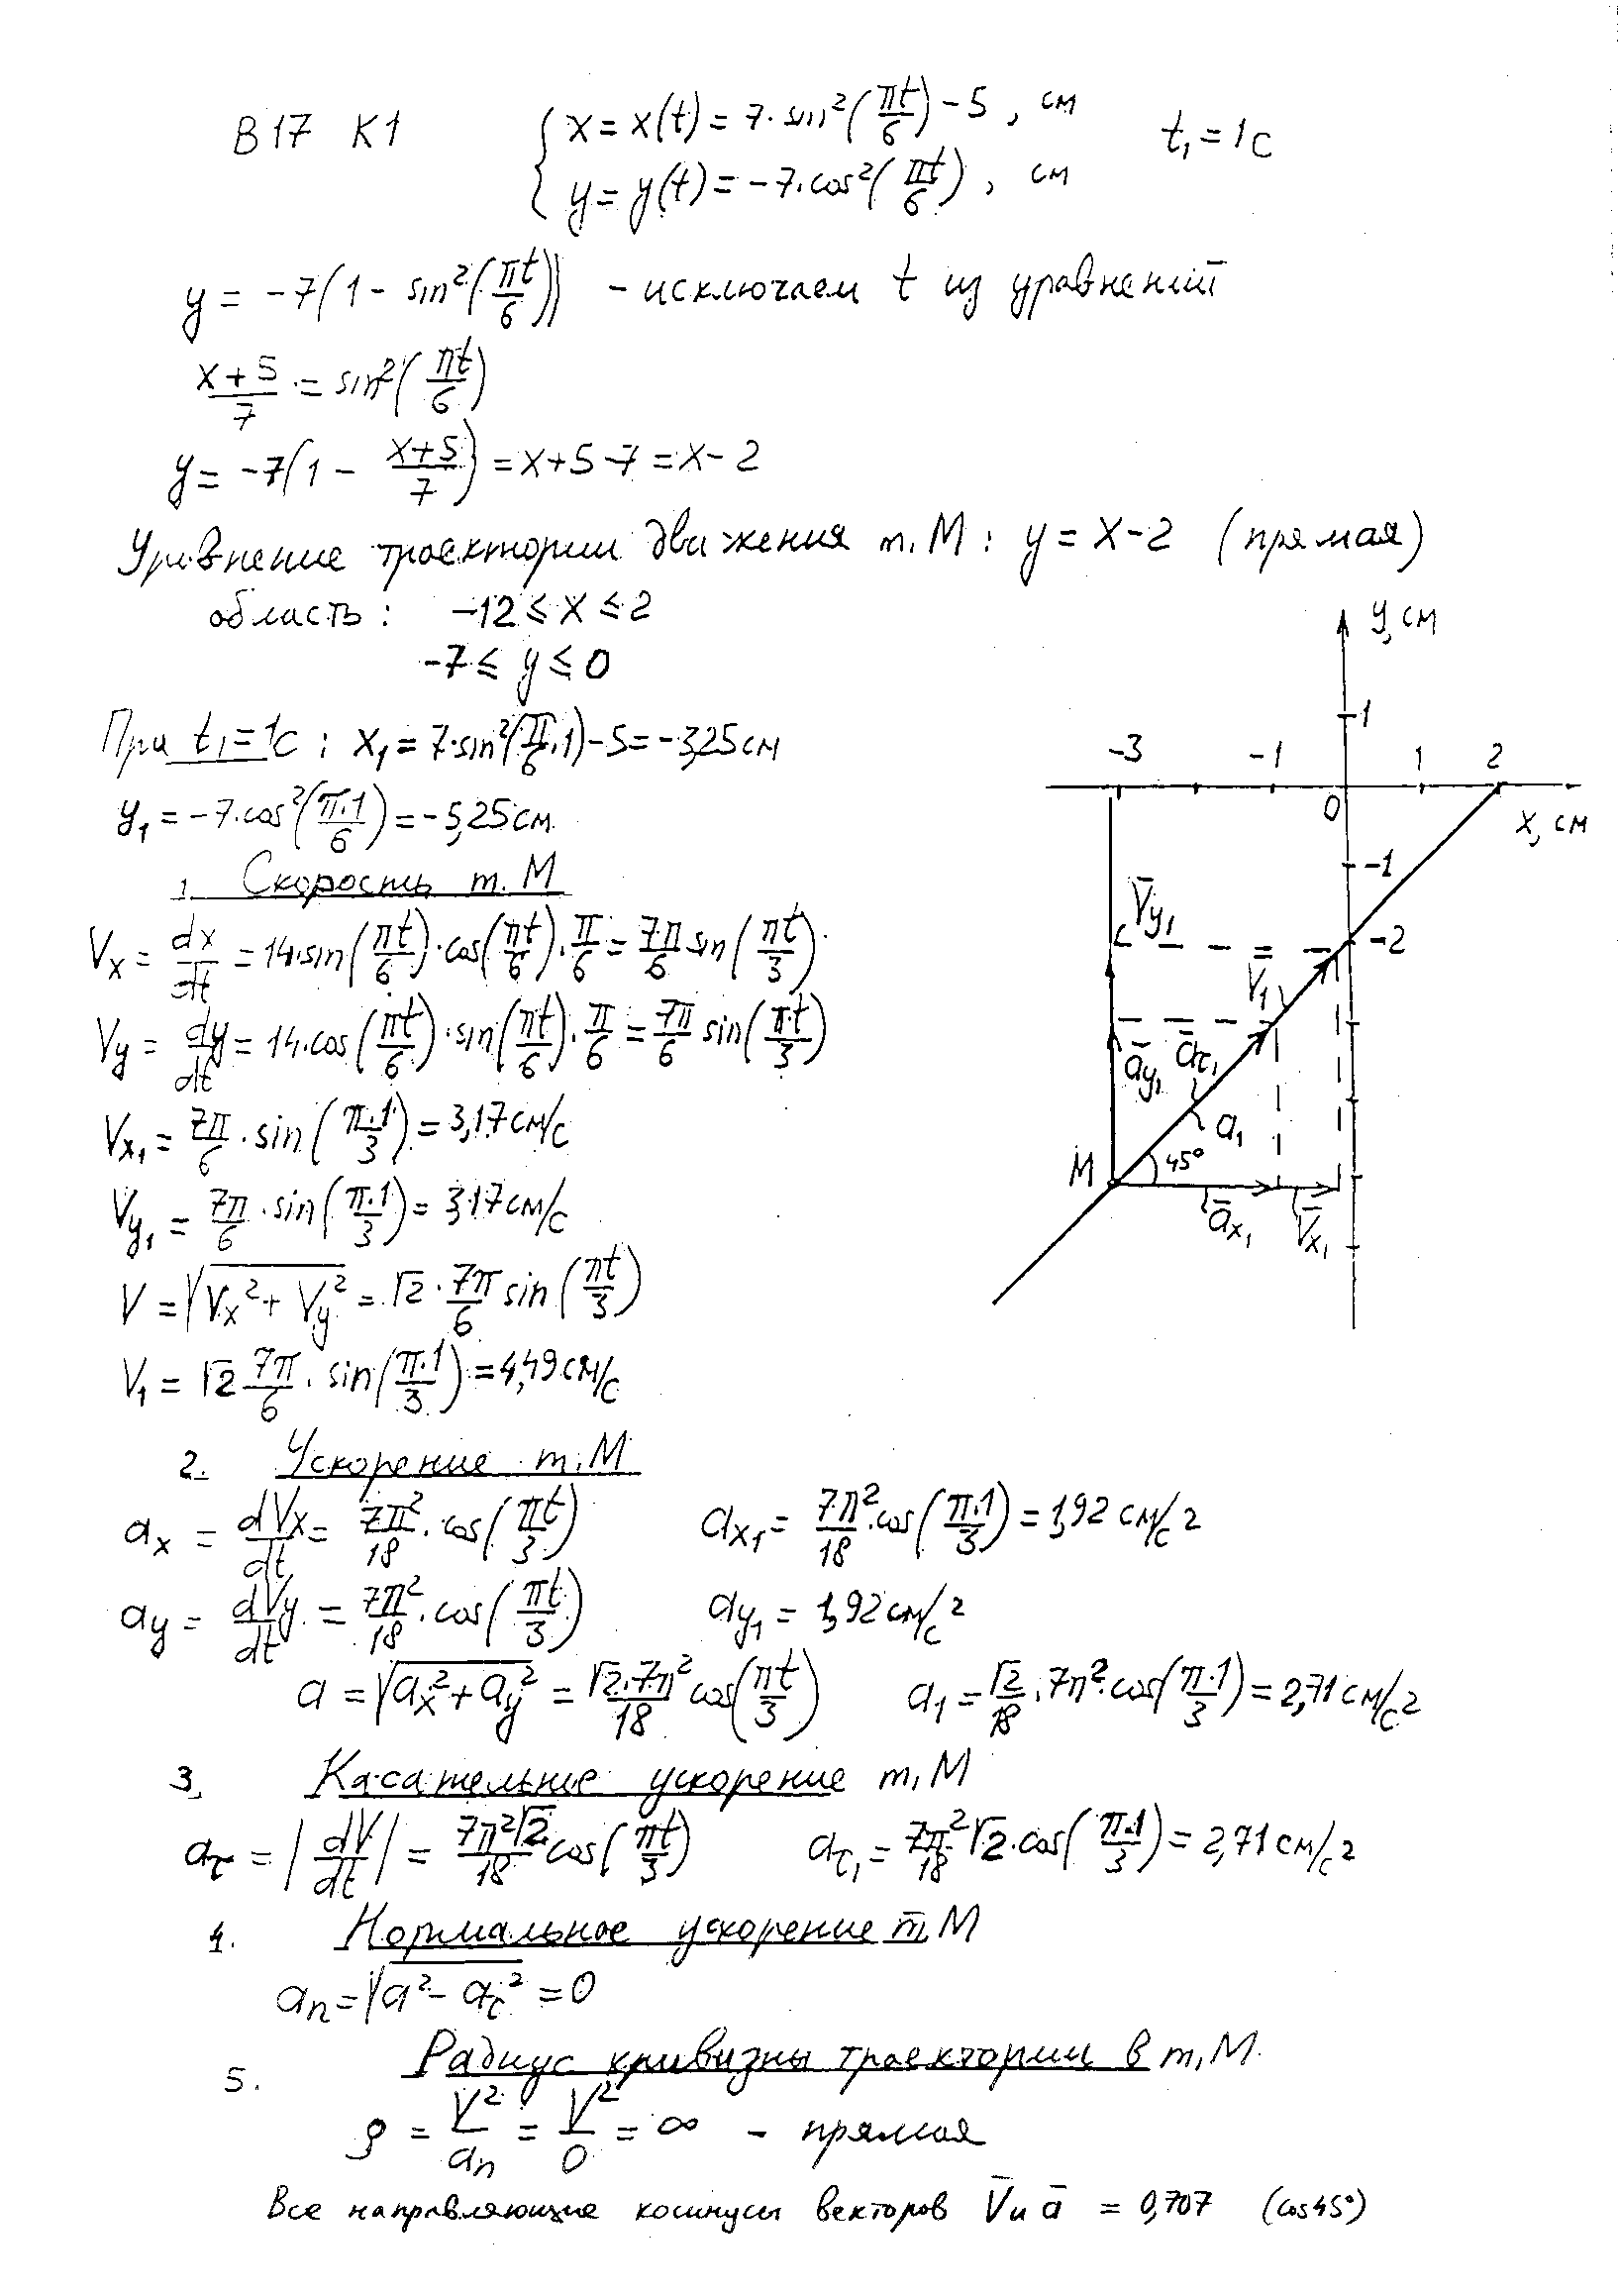 В17 К1 { x = x(t) = 7·sin²(πt/6) − 5, см t₁ = 1с
y = y(t) = −7·cos²(πt/6), см
y = −7(1 − sin²(πt/6)) – исключаем t из уравнений
(x+5)/7 = sin²(πt/6)
y = −7(1 − (x+5)/7) = x+5−7 = x−2
Уравнение траектории движения т.М: y = x−2 (прямая)
область: −12 ≤ x ≤ 2
−7 ≤ y ≤ 0
При t₁=1с: x₁ = 7·sin²(π/6·1)−5 = −3,25см
y₁ = −7·cos²(π·1/6) = −5,25см
1. Скорость т.М
Vx = dx/dt = 14·sin(πt/6)·cos(πt/6)·π/6 = 7π/6 sin(πt/3)
Vy = dy/dt = 14·cos(πt/6)·sin(πt/6)·π/6 = 7π/6 sin(πt/3)
Vx₁ = 7π/6·sin(π·1/3) = 3,17см/с
Vy₁ = 7π/6·sin(π·1/3) = 3,17см/с
V = √(Vx²+Vy²) = √2·7π/6 sin(πt/3)
V₁ = √2 7π/6·sin(π·1/3) = 4,49см/с
y, см
1
−3 −1 1 2
0
x, см
−1
V̄y₁
−2
V̄₁
āy₁ āτ₁
a₁
М 45°
āx₁ V̄x₁
2. Ускорение т.М
ax = dVx/dt = 7π²/18·cos(πt/3) ax₁ = 7π²/18·cos(π·1/3) = 1,92 см/с²
ay = dVy/dt = 7π²/18·cos(πt/3) ay₁ = 1,92см/с²
a = √(ax²+ay²) = √2·7π²/18 cos(πt/3) a₁ = √2/18·7π²·cos(π·1/3) = 2,71см/с²
3. Касательние ускорение т.М
aτ = |dV/dt| = 7π²√2/18 cos(πt/3) aτ₁ = 7π²/18 √2·cos(π·1/3) = 2,71см/с²
4. Нормальное ускорение т.М
an = √(a²−aτ²) = 0
5. Радиус кривизны траектории в т.М.
ρ = V²/an = V²/0 = ∞ – прямая
Все направляющие косинусы векторов V̄ и ā = 0,707 (cos45°)